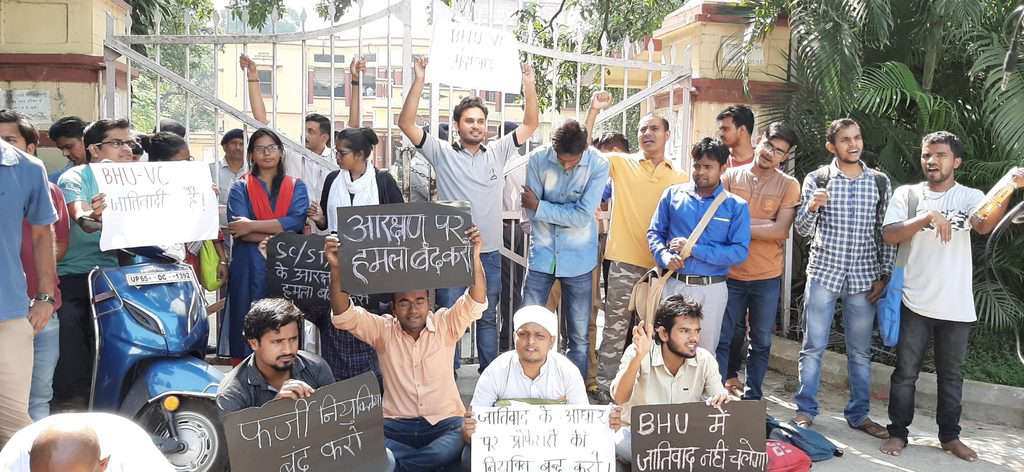 BHU-VC
BHU-VC
जातिवादी है!
आरक्षण पर
हमला बंद करो
SC/ST
के आरक्षण
हमला बंद
UP 65
1392
फर्जी नियुक्तियां
बंद करो
जातिवाद के आधार
पर प्रोफेसरों की
नियुक्ति बन्द करो!
BHU में
जातिवाद नहीं चलेगा